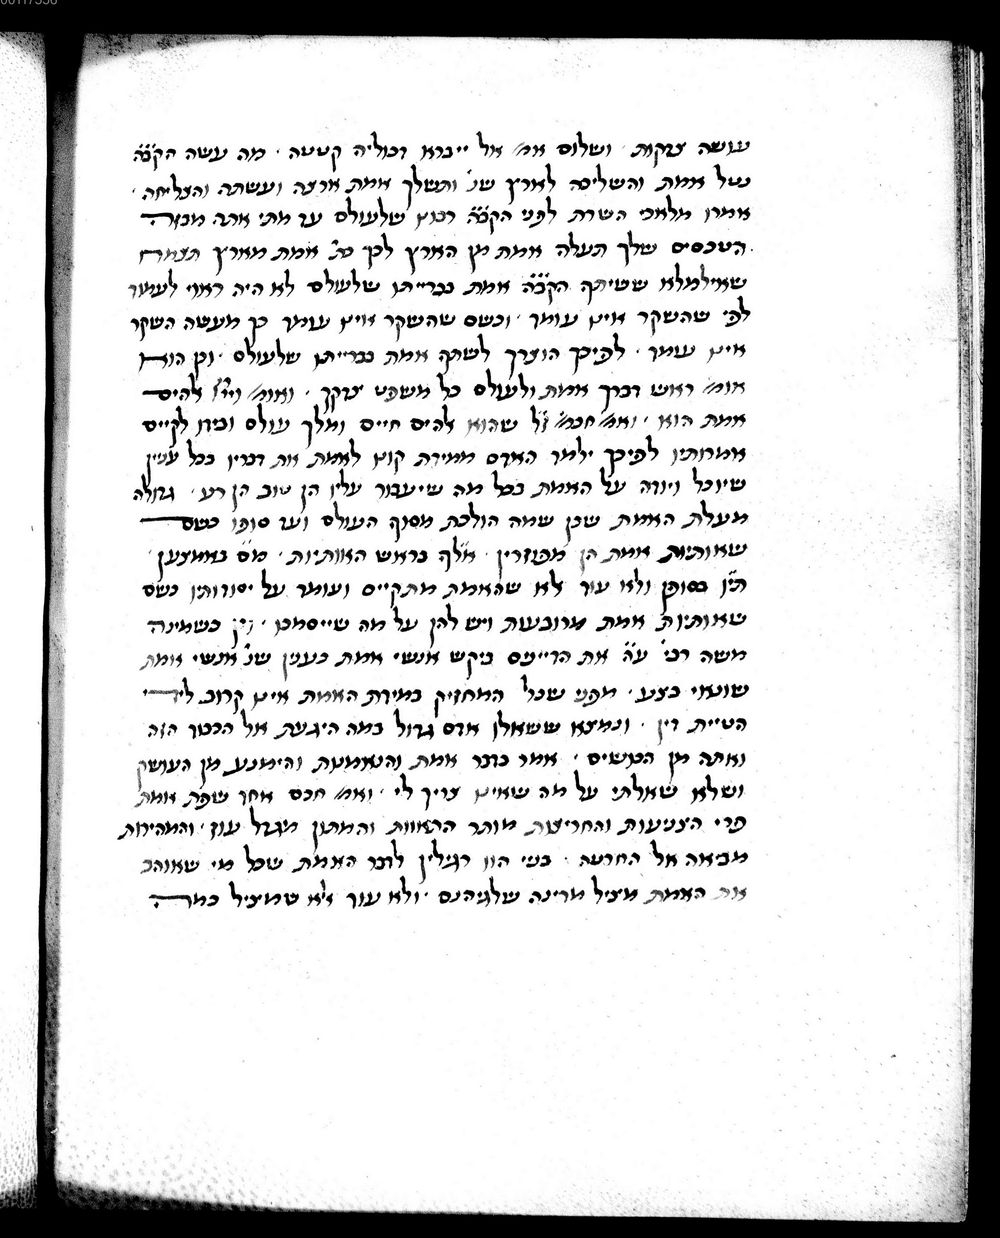 עושה צדקות · ושלום אמ׳ אל ייברא דכוליה קטטה · מה עשה הקבה
נטל אמת והשליכה לארץ שנ׳ ותשלך אמת ארצה ועשתה והצליחה ·
אמרו מלאכי השרת לפני הקבה רבון שלעולם עד מתי אתה מבזה
הטכסים שלך תעלה אמת מן הארץ לכך כת׳ אמת מארץ תצמח
שאילמלא ששיתף הקבה אמת בברייתו שלעולם לא היה ראוי לעמוד
לפי שהשקר אינו עומד · וכשם שהשקר אינו עומד כך מעשה השקר
אינו עומד · לפיכך הוצרך לשתף אמת בברייתו שלעולם · וכן הוא
אומ׳ ראש דברך אמת ולעולם כל משפט צדקך · ואומ׳ וייי אלהים
אמת הוא · ואמ׳ חכמ׳ ז״ל שהוא אלהים חיים ומלך עולם ובידו לקיים
אמרותיו לפיכך ילמד האדם ממידת קונו לאמת את דבריו בכל ענין
שיוכל ויודה על האמת בכל מה שייעבור עליו הן טוב הן רע · גדולה
מעלת האמת שכן שמה הולכת מסוף העולם ועד סופו כשם
שאותיות אמת הן מפוזרין · אלף בראש האותיות · מם באמצען ·
תיו בסופן ולא עוד אלא שהאמת מתקיים ועומד על יסודותיו כשם
שאותיות אמת מרובעות ויש להן על מה שייסמכו · וכן כשמינה
משה רבי׳ ע״ה את הדיינים ביקש אנשי אמת כענין שנ׳ אנשי אמת
שונאי בצע · מפני שכל המחזיק במידת האמת אינו קרוב לידי
הטיית דין · ונמצא ששאלו אדם גדול במה היגעת אל הכבוד הזה
ואתה מן הקטשים · אמר בדבר אמת והנאמנות והימנע מן העושק
ושלא שאלתי על מה שאינו צריך לי · ואמ׳ חכם אחד שפת אמת
פרי הצניעות והחריצות מותר הראוות והמתון מגדל עוז · והמהירות
מביאה אל החרטה · בני הוו רגילין לדבר האמת שכל מי שאוהב
את האמת מציל מדינה שלגיהנם · ולא עוד אלא שמציל כמה